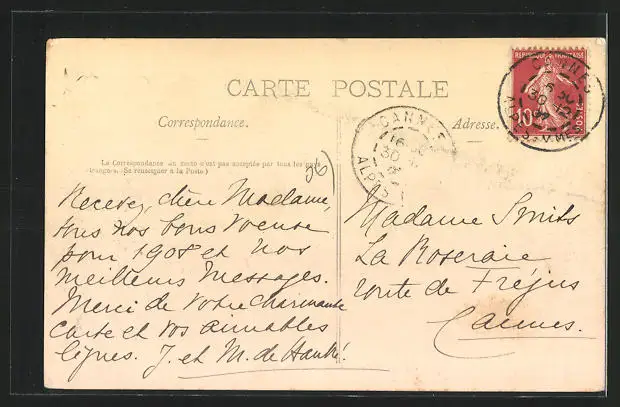 CARTE POSTALE
Correspondance.
Adresse.
La Correspondance au recto n'est pas acceptée par tous les pays
étrangers. (Se renseigner à la Poste.)
REPUBLIQUE FRANÇAISE
10
POSTES
CANNES
16
30
ALPES
CANNES
30
ALPES
(36)
Recevez, chère Madame,
tous nos bons voeux
pour 1908 et nos
meilleurs messages.
Merci de votre charmante
carte et vos aimables
lignes. J. et M. de
Madame Smits
La Roseraie
route de Fréjus
Cannes.